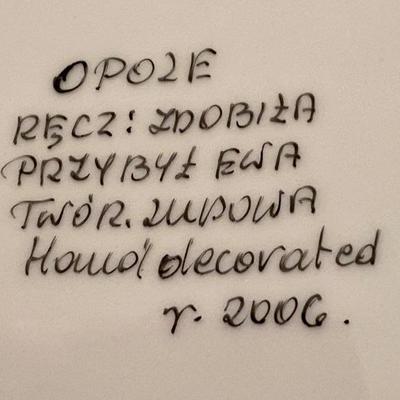 OPOLE
RĘCZ: ZDOBIŁA
PRZYBYŁ EWA
TWÓR. LUDOWA
Hand decorated
r. 2006.